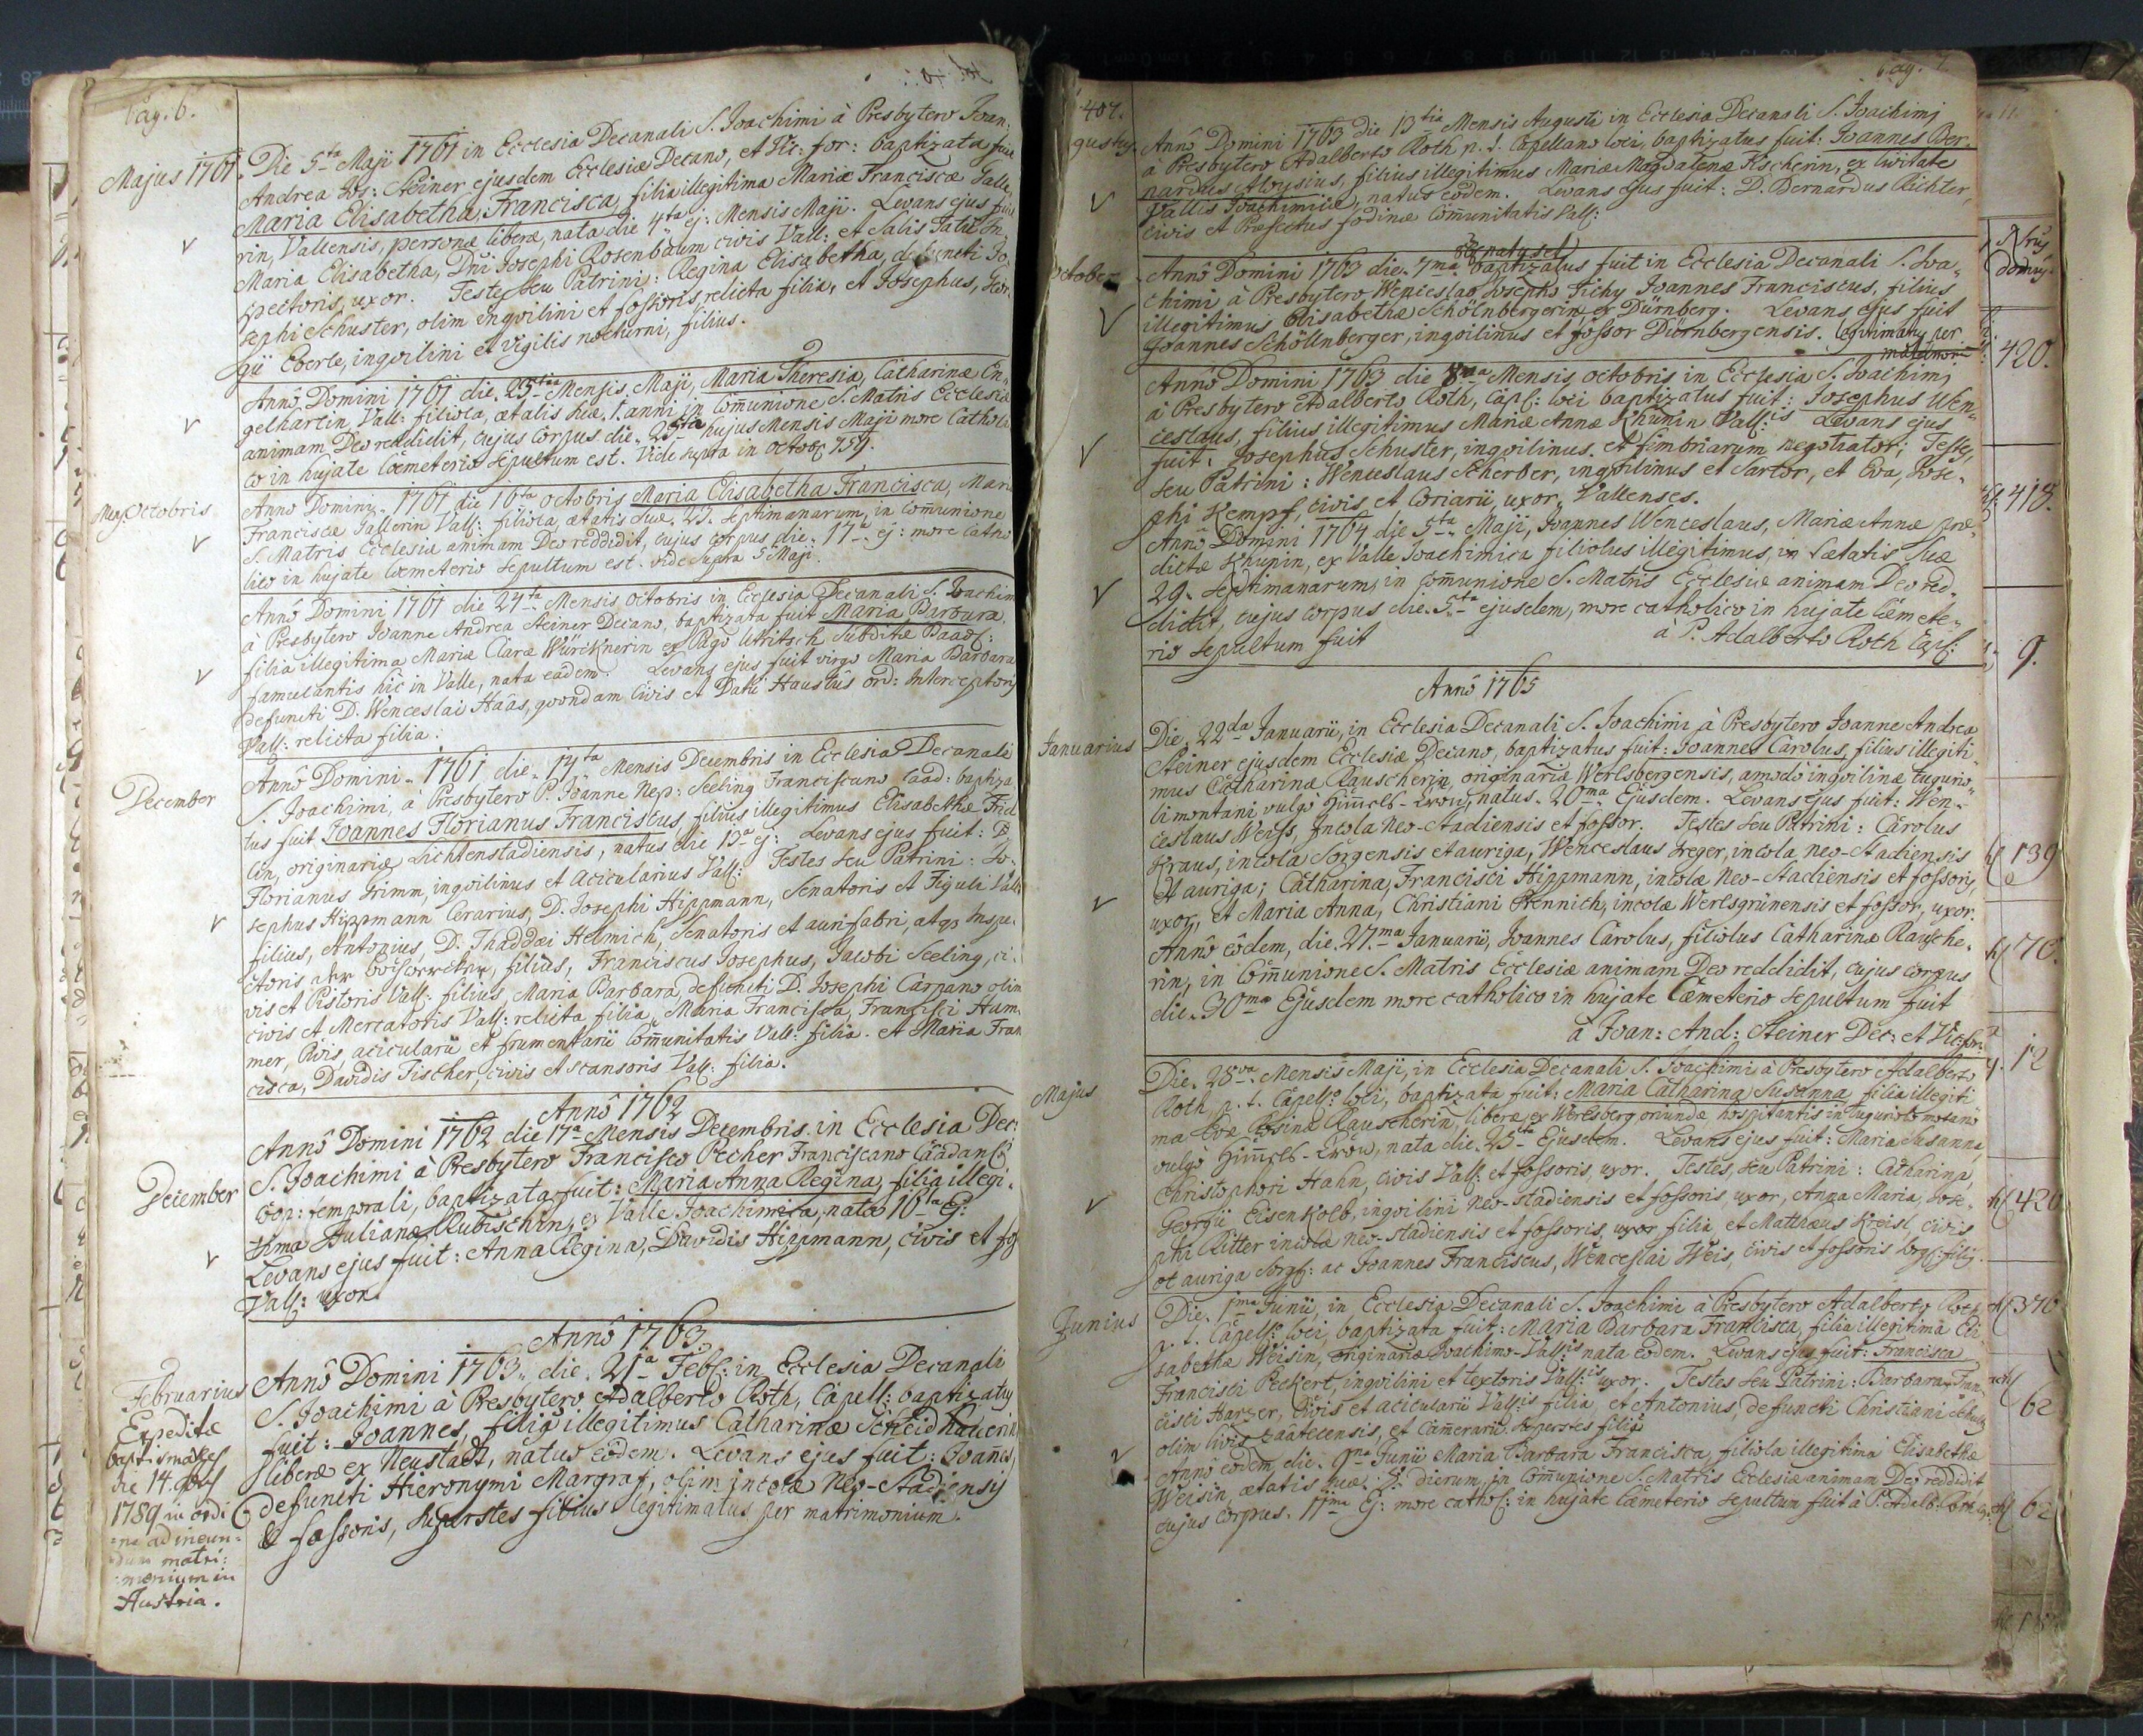 Pag. 6.
Majus 1761.
Die 5ta Maji 1761 in Ecclesia Decanali S. Joachimi à Presbytero Joan:
Andrea Steiner ejusdem Ecclesiæ Decano, et Vic: for: baptizata fuit
Maria Elisabetha Francisca, filia illegitima Mariæ Franciscæ
rin, Vallensis, personæ liberæ, nata die 4ta ej: Mensis Maji. Levans ejus fuit
Maria Elisabetha, Dni Josephi Rosenbaum civis Vall: et Salis
spectoris, uxor. Testes seu Patrini: Regina Elisabetha, defuncti Jo-
sephi Schuster, olim inqvilini et fossoris, relicta filia, et Josephus, Geor-
gii Eberle, inqvilini et vigilis nocturni, filius.
Annô Domini 1761 die 25ta Mensis Maji, Maria Theresia, Catharinæ En-
gelhartin, Vall: filiola, ætatis suæ, 1. anni in Com̄unione S. Matris Ecclesiæ
animam Deo reddidit, cujus corpus die hujus Mensis Maji more Catholi-
co in hujate Cœmeterio sepultum est. Vide supra in Octob: 759.
Mens. Octobris
Anno Domini 1761 die 16ta Octobris Maria Elisabetha Francisca, Mariæ
Franciscæ Vall: filiola, ætatis suæ, septimanarum, in com̄unione
S. Matris Ecclesiæ animam Deo reddidit, cujus corpus die 17a ej: more Catho-
lico in hujate Cœmeterio sepultum est. vide supra 5 Maji.
Annô Domini 1761 die 24ta Mensis Octobris in Ecclesia Decanali S. Joachimi
à Presbytero Joanne Andrea Steiner Decano, baptizata fuit Maria Barbara,
filia illegitima Mariæ Claræ Würcknerin ex Pago subditæ
famulantis hic in Valle, nata eadem. Levans ejus fuit virgo Maria Barbara
defuncti D. Wenceslai Haas, qvondam Civis et Datii Haustûs ord: Interceptoris
Vall: relicta filia.
December
Annô Domini 1761 die 14ta Mensis Decembris in Ecclesia Decanali
S. Joachimi, à Presbytero P. Joanne Nep: Seeling Franciscano Caad: baptiza-
tus fuit Joannes Florianus Franciscus, filius illegitimus Elisabethæ
lin, originariæ Lichtenstadiensis, natus die 13a ej: Levans ejus fuit: D.
Florianus Grimm, inqvilinus et acicularius Vall: Testes seu Patrini: Jo-
sephus Hippmann Cerarius, D. Josephi Hippmann, Senatoris et Figuli Vall:
filius, Antonius, D. Thaddæi Helmich, Senatoris et aurifabri, atq Inspe-
ctoris filius, Franciscus Josephus, Jacobi Seeling, ci-
vis et Pistoris Vall: filius, Maria Barbara, defuncti D. Josephi Carpano olim
civis et Mercatoris Vall: relicta filia, Maria Francisca, Francisci Ham-
mer, Civis acicularii et frumentarii Com̄unitatis Vall: filia. et Maria Fran-
cisca, Davidis Fischer, civis et scansoris Vall: filia.
Annô 1762
December
Annô Domini 1762 die 17a Mensis Decembris in Ecclesia Dec:
S. Joachimi à Presbytero Francisco Pecher Franciscano Caadan:
Coop: temporali, baptizata fuit: Maria Anna Regina, filia illegi-
tima Julianæ Rubischin, ex Valle Joachimica, nata 16ta Ej:
Levans ejus fuit: Anna Regina, Davidis Hippmann, civis et fos
Vall: uxor.
Annô 1763.
Februarius
Annô Domini 1763 die 21a Feb: in Ecclesia Decanali
S. Joachimi à Presbytero Adalberto Roth, Capell: baptizatus
fuit: Joannes, filius illegitimus Catharinæ Scheidhauerin
liberæ ex Neustadt, natus eôdem. Levans ejus fuit: Joannes,
defuncti Hieronymi Margraf, olim incolæ Neo-Stadiensis
& fossoris, superstes filius legitimatus per matrimonium.
Expeditæ
baptismales
die 14. 9bris
1789 in ordi
=ne ad ineun=
dum matri:
=monium in
Austria.
Pag. 7.
407.
gustus
Annô Domini 1763 die 13tia Mensis Augusti in Ecclesia Decanali S. Joachimi
à Presbytero Adalberto Roth p. t. Capellano loci, baptizatus fuit: Joannes Ber-
nardus Aloysius, filius illegitimus Mariæ Magdalenæ Fischerin, ex Civitate
Vallis Joachimicæ, natus eôdem. Levans ejus fuit: D. Bernardus Richter,
civis et Præfectus fodinæ Com̄unitatis Vall:
October
Annô Domini 1763 die 7ma baptizatus fuit in Ecclesia Decanali S. Joa-
chimi à Presbytero Wenceslao Josepho Tichy Joannes Franciscus, filius
illegitimus Elisabethæ Schöllnbergerin ex Dürnberg. Levans ejus fuit
Joannes Schöllnberger, inqvilinus et fossor Dürnbergensis. legitimatus per
matrimon
Annô Domini 1763 die 8va Mensis Octobris in Ecclesia S. Joachimi
à Presbytero Adalberto Roth, Capl: loci baptizatus fuit: Josephus Wen-
ceslaus, filius illegitimus Mariæ Annæ Khunin Vall:is Levans ejus
fuit: Josephus Schuster, inqvilinus et fimbriarum negotiator; Testes,
seu Patrini: Wenceslaus Scherber, inqvilinus et Sartor, et Eva, Jose-
phi Kempf, civis et Coriarii, uxor, Vallenses.
Annô Domini 1764 die 5ta Maji, Joannes Wenceslaus, Mariæ Annæ præ-
dictæ Khunin, ex Valle Joachimica filiolus illegitimus, in ætatis suæ
29. septimanarum, in com̄unione S. Matris Ecclesiæ animam Deo red-
didit, cujus corpus die ejusdem, more catholico in hujate Cœmete-
rio sepultum fuit
à P. Adalberto Roth Cap:
Annô 1765
Januarius
Die 22da Januarii, in Ecclesia Decanali S. Joachimi à Presbytero Joanne Andrea
Steiner ejusdem Ecclesiæ Decano, baptizatus fuit: Joannes Carolus, filius illegiti-
mus Catharinæ Rauscherin, originariæ Werlsbergensis, amodò inqvilinæ tugurio-
li montani vulgo natus 20ma Ejusdem. Levans ejus fuit: Wen-
ceslaus Weiss, Incola Neo-Stadiensis et fossor. Testes seu Patrini: Carolus
Kraus, incola Sorgensis et auriga, Wenceslaus Greger, incola neo-stadiensis
et auriga; Catharina, Francisci Hippmann, incolæ Neo-Stadiensis et fossoris,
uxor, et Maria Anna, Christiani Hennich, incolæ Werlsgrünensis et fossor, uxor.
Annô eôdem, die 27ma Januarii, Joannes Carolus, filiolus Catharinæ Rausche-
rin, in Com̄unione S. Matris Ecclesiæ animam Deo reddidit, cujus corpus
die 30ma Ejusdem more catholico in hujate Cœmeterio sepultum fuit
à Joan: And: Steiner Dec: et Vic: for:
Majus
Die 28va Mensis Maji, in Ecclesia Decanali S. Joachimi à Presbytero Adalberto
Roth, p. t. Capell: loci, baptizata fuit: Maria Catharina Susanna, filia illegiti
ma Evæ Rosinæ Rauscherin, liberæ, ex Werlsberg oriundæ hospitantis in tuguriolo
vulgò nata die 25ta Ejusdem. Levans ejus fuit: Maria Susanna,
Christophori Hahn, civis Vall: et fossoris, uxor. Testes, seu Patrini: Catharina,
Georgii Eisenkolb, inqvilini neo-stadiensis et fossoris, uxor, Anna Maria, Jose-
phi Ritter incolæ neo-stadiensis et fossoris, uxor filia et Matthæus Kreisl, civis
et auriga ac Joannes Franciscus, Wenceslai Weis, civis et fossoris filij.
Junius
Die 1ma Junii, in Ecclesia Decanali S. Joachimi à Presbytero Adalberto Roth
p. t. Capell: loci, baptizata fuit: Maria Barbara Francisca, filia illegitima Eli
sabethæ Weisin, originariæ Joachimo-Vall:is nata eôdem. Levans ejus fuit: Francisca
Francisci Peckert, inqvilini et textoris Vall:is uxor. Testes seu Patrini: Barbara Fran-
cisci Harzer, civis et acicularii Vall:is filia, et Antonius, defuncti Christiani
olim civis Zaatecensis, et Cam̄erarii superstes filius
Annô eôdem, die 9na Junii Maria Barbara Francisca, filiola illegitima Elisabethæ
Weisin, ætatis suæ 8. dierum, in Com̄unione S. Matris Ecclesiæ animam Deo reddidit
cujus corpus 11ma Ej: more cathol: in hujate Cœmeterio sepultum fuit à P. Adalb: Roth
Nrus
domus
420.
418.
9.
139
70.
12
420
370
62
62